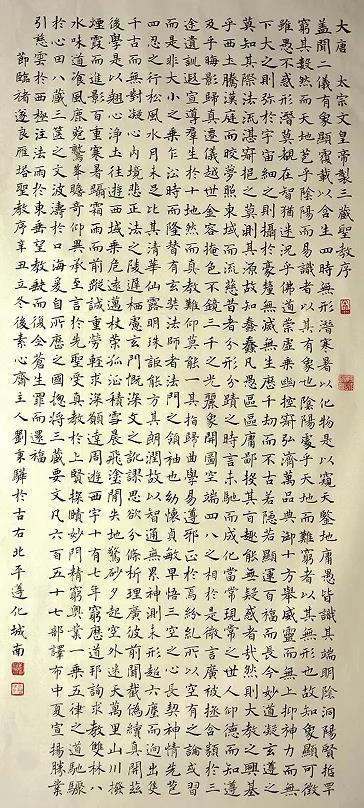 大唐 太宗文皇帝製三藏聖教序
蓋聞二儀有象顯覆載以含生四時無形潛寒暑以化物是以窺天鑒地庸愚皆識其端明陰洞陽賢哲罕
窮其數然而天地苞乎陰陽而易識者以其有象也陰陽處乎天地而難窮者以其無形也故知象顯可徵
雖愚不惑形潛莫覩在智猶迷況乎佛道崇虛乘幽控寂弘濟萬品典御十方舉威靈而無上抑神力而無
下大之則弥於宇宙細之則攝於豪釐無滅無生歷千劫而不古若隱若顯運百福而長今妙道凝玄遵之
莫知其際法流湛寂挹之莫測其源故知蠢蠢凡愚區區庸鄙投其旨趣能無疑惑者哉然則大教之興基
乎西土騰漢庭而皎夢照東域而流慈昔者分形分蹟之時言未馳而成化當常現常之世人仰德而知遵
及乎晦影歸真遷儀越世金容掩色不鏡三千之光麗象開圖空端四八之相於是微言廣被拯含類於三
途遺訓遐宣導群生於十地然而真教難仰莫能一其指歸曲學易遵邪正於焉紛糺所以空有之論或習
而是非大小之乘乍沿時而隆替有玄奘法師者法門之領袖也幼懷貞敏早悟三空之心長契神情先苞
四忍之行松風水月未足比其清華仙露明珠詎能方其朗潤故以智通無累神測未形超六塵而迥出隻
千古而無對凝心內境悲正法之陵遲栖慮玄門慨深文之訛謬思欲分條析理廣彼前聞截偽續真開茲
後學是以翹心淨土往遊西域乘危遠邁杖策孤征積雪晨飛塗閒失地驚砂夕起空外迷天萬里山川撥
煙霞而進影百重寒暑躡霜雨而前蹤誠重勞輕求深願達周遊西宇十有七年窮歷道邦詢求教雙林八
水味道飡風鹿菀鷲峯瞻奇仰異承至言於先聖受真教於上賢探賾妙門精窮奧業一乘五律之道馳驟
於心田八藏三篋之文波濤於口海爰自所歷之國揔將三藏要文凡六百五十七部譯布中夏宣揚勝業
引慈雲於西極注法雨於東垂聖教缺而復全蒼生罪而還福
節臨褚遂良雁塔聖教序辛丑立冬後素心齋主人劉東驊於古右北平遵化城南